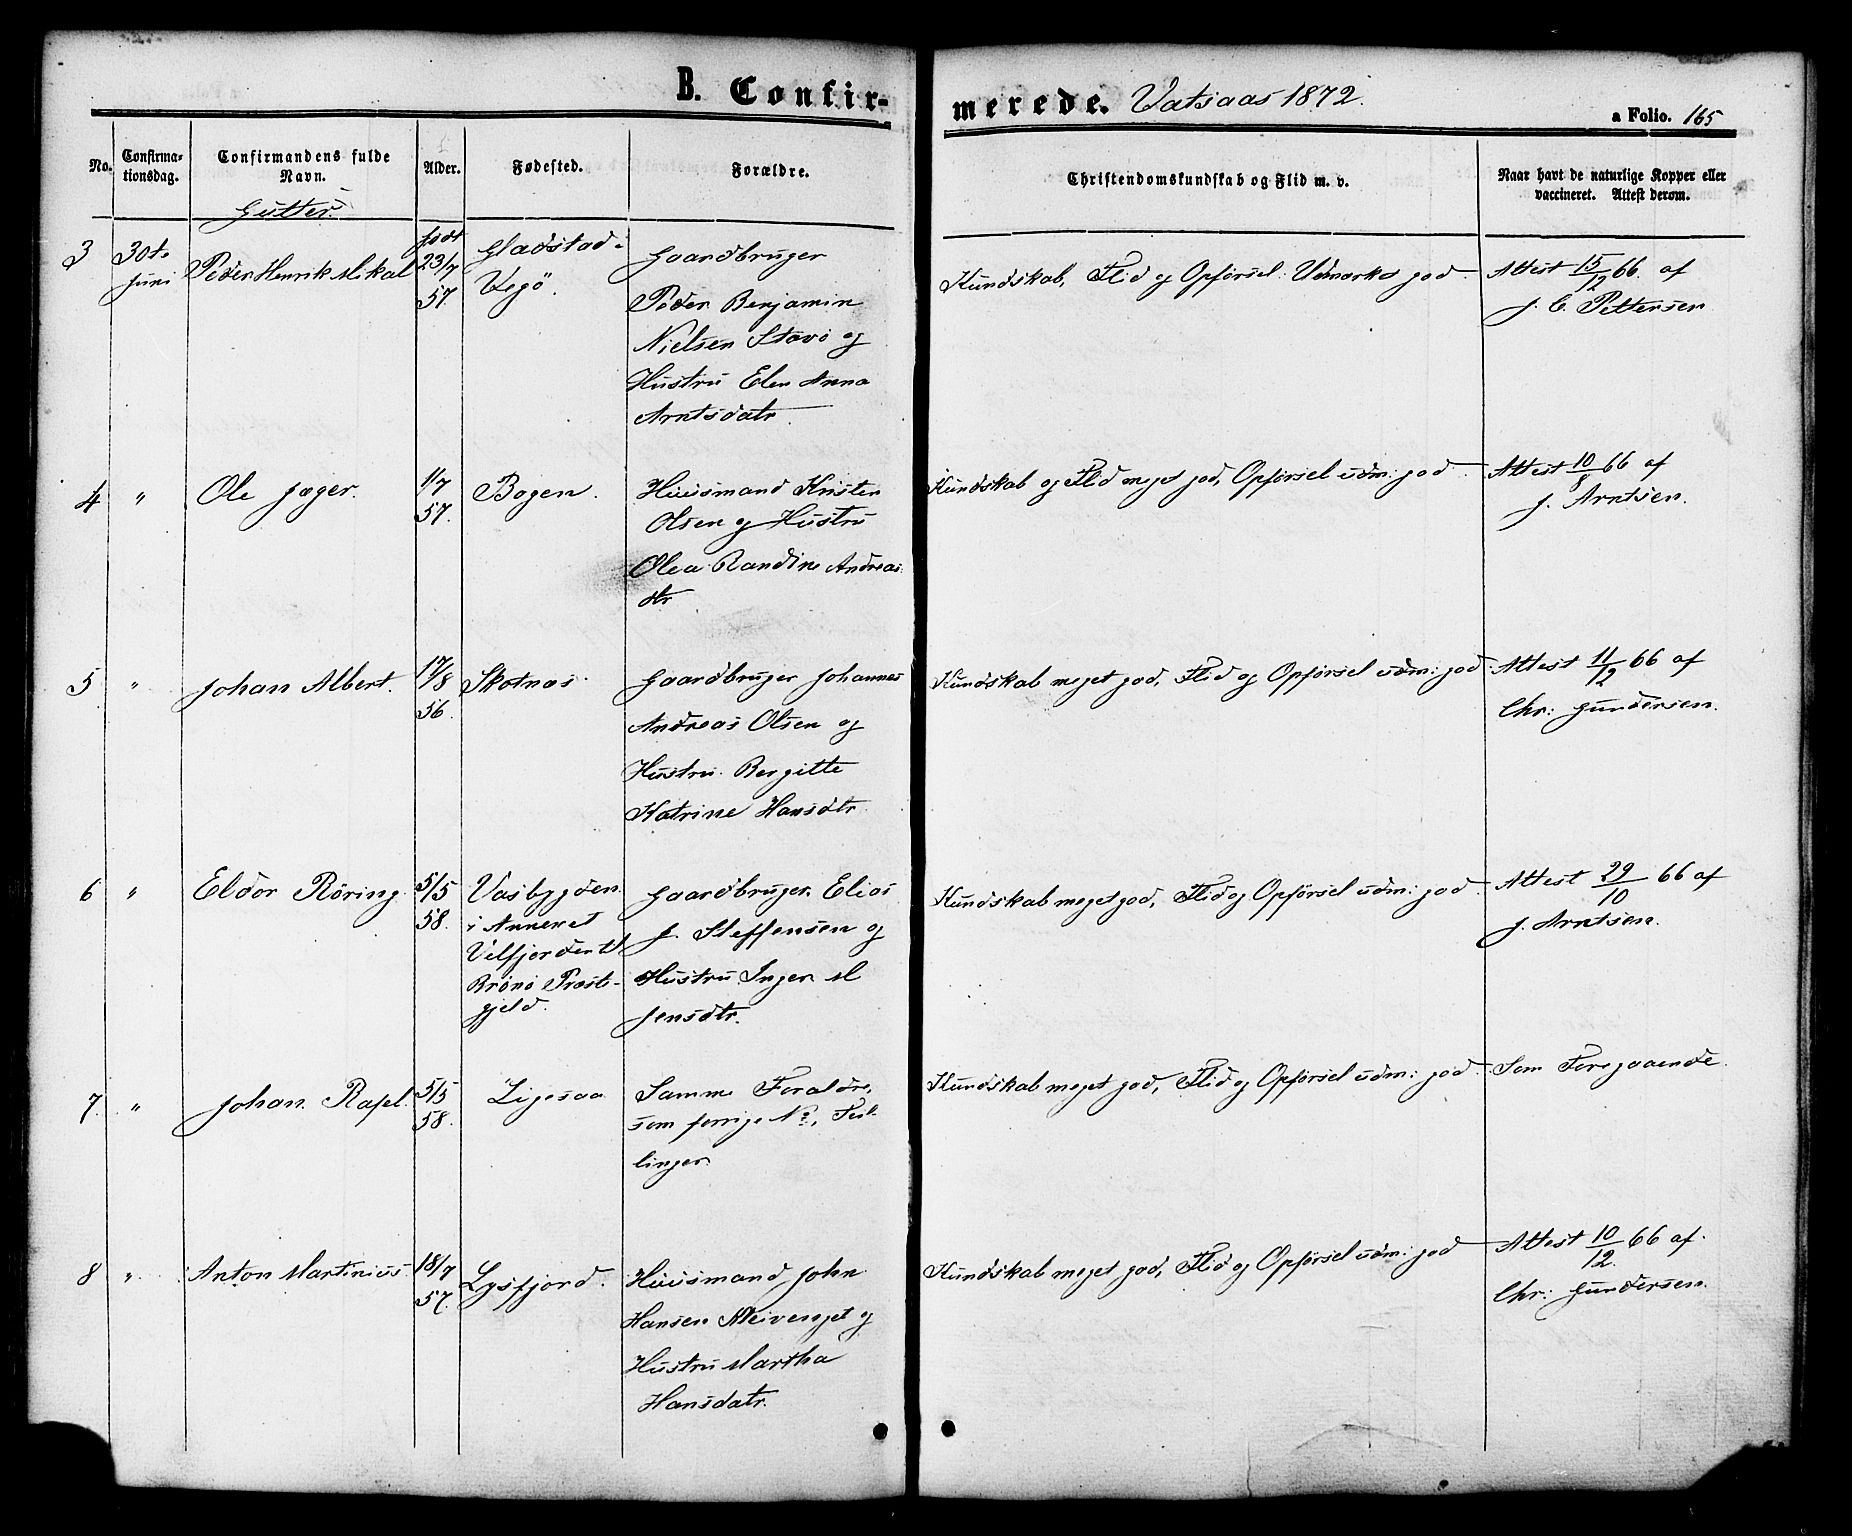 B. Confir-
merede. Vatsaas 1872.
a Folio. 165
No.
Confirma-
tionsdag.
Confirmandens fulde
Navn.
Alder.
Fødested.
Forældre.
Christendomskundskab og Flid m. v.
Naar havt de naturlige Kopper eller
vaccineret. Attest derom.
Gutter.
3
30te
Juni
Peder Henrik Mikal
født
23/7
57.
Gladstad
Vegö.
Gaardbruger
Peder Benjamin
Nielsen Stavö og
Hustru Elen Anna
Arntsdatr.
Kundskab, Flid og Opförsel: Udmærket god.
Attest 15/12 66. af
J. C. Pettersen
4
"
Ole Jæger.
1/7
57.
Bogen.
Huusmand Krister
Olsen og Hustru
Olea Randine Andreas
dtr
Kundskab og Flid meget god, Opförsel udm: god.
Attest 10/8 66 af
J. Arntsen.
5
"
Johan Albert.
17/8
56.
Skotnæs
Gaardbruger Johannes
Andreas Olsen og
Hustru Bergitte
Katrine Hansdtr
Kundskab meget god, Flid og Opförsel udm: god
Attest 11/2 66 af
Chr: Gundersen.
6
"
Eldor Röring
5/5
58.
Vasbygden
i Annexet
Velfjorden til
Brönö Præste-
gjeld.
Gaardbruger Elias
J. Steffensen og
Hustru Inger M
Jensdtr.
Kundskab meget god, Flid og Opförsel udm: god
Attest 29/10 66 af
J. Arntsen.
7.
"
Johan Rafel.
5/5
58.
Ligesaa
Samme Forældre,
som forrige No, Tvil-
linger.
Kundskab meget god, Flid og Opförsel udm: god
Som Foregaaende.
8
"
Anton Martinius
18/7
57.
Lysfjord.
Huusmand John
Hansen Meivenget og
Hustru Martha
Hansdatr.
Kundskab meget god, Flid og Opförsel udm: god
Attest 10/12. 66 af.
Chr: Gundersen.